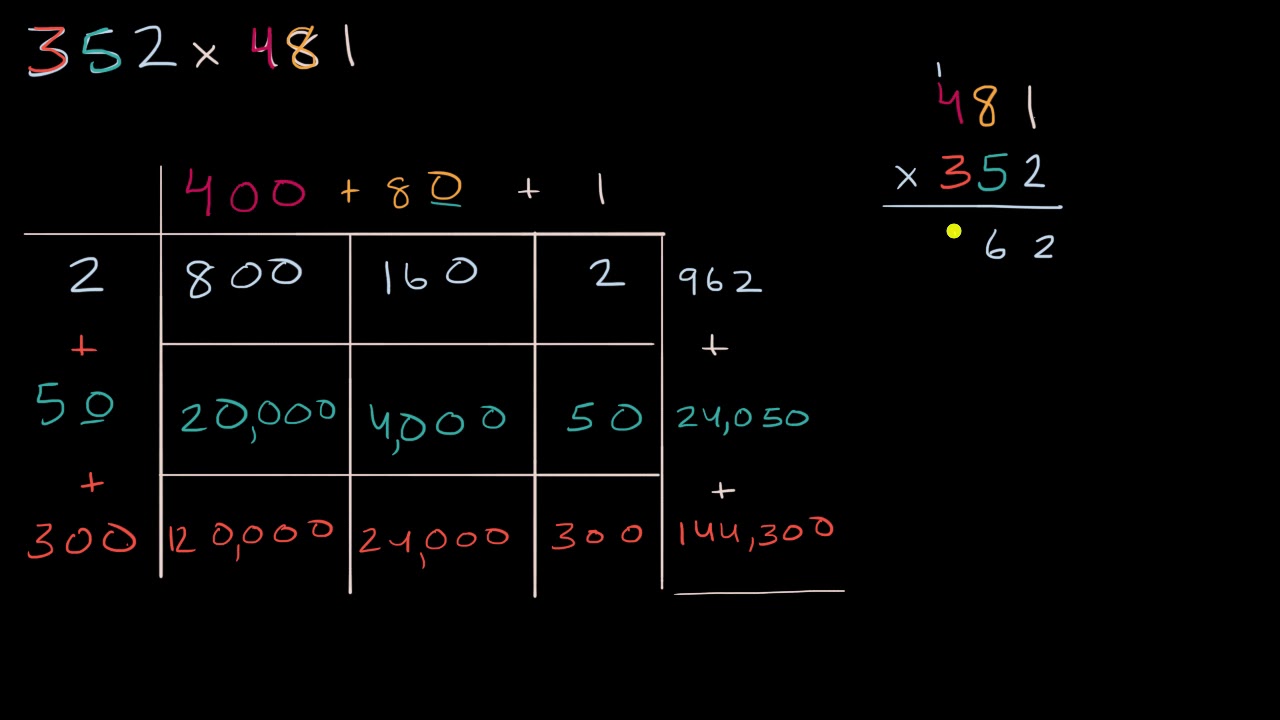 352 × 481
400 + 80 + 1
2 800 160 2 962
+ +
50 20,000 4,000 50 24,050
+ +
300 120,000 24,000 300 144,300
1
481
× 352
62